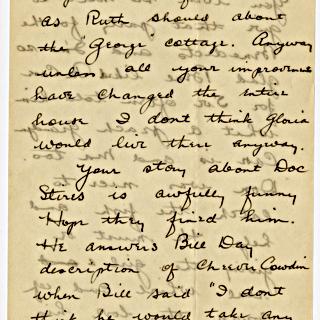 as Ruth should about
the "George" cottage. Anyway
unless all your improvements
have changed the entire
house I don't think Gloria
would live there anyway.
Your story about Doc
Stires is awfully funny
Hope they fined him.
He answers Bill Day
description of Cheever Cowdin
when Bill said "I don't
think he would take any